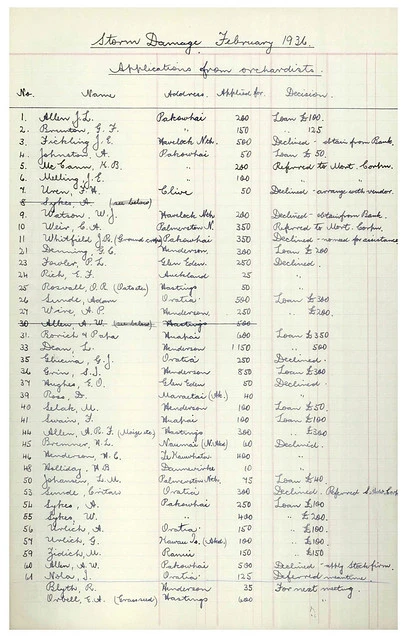 Storm Damage February 1936.
Applications from orchardists.
No. Name Address. Applied for. Decision.
1. Allen J.L. Pakowhai 200 Loan £100.
2. Brunton, G. F. " 150 " 125
3. Fickling J.E. Havelock Nth. 500 Declined - obtain from Bank.
4. Johnston, A. Pakowhai 50 Loan £ 50.
5. McCann, K.B. " 200 Referred to Mort. Corpn.
6. Melling J.E. " 100 "
7. Uren, F.H. Clive 50 Declined - arrange with vendor.
8 Sykes, A. (see below)
9 Watson, W.J. Havelock Nth 200 Declined - obtain from Bank.
10 Weir, C.A. Palmerston N. 350 Referred to Mort. Corpn.
11 Whitfield J.R. (Ground crops) Pakowhai 350 Declined - no need for assistance
21 Denning, G.C. Henderson 300 Loan £ 200
23 Fowler, P.L. Glen Eden 250 Declined.
24 Rich, E.F. Auckland 25 "
25 Roswall, O.R. Hastings 50 "
26 Sunde, Adam Oratia 500 Loan £ 300
27 Wire, A.P. Henderson 250 " £200.
30 Allen A.W. (see below) Hastings 500
31 Borich & Papa Huapai 600 Loan £350
33 Dean, L. Henderson 1150 " 500
35 G.J. Oratia 250 Declined.
36 Grin, S.J. Henderson 850 Loan £300
37 Hughes, E.O. Glen Eden 50 Declined.
39 Ross, D. Maraetai 40 "
40 Selak, M. Henderson 100 Loan £50.
41 Swain, F. Huapai 100 Loan £100
44 Allen, A.R.F. Hastings 300 " £300
45 Bremner, W.L. 60 Declined.
46 Henderson, W.C. Te Kauwhata 400 "
48 Holliday, W.B Dannevirke 10 "
50 Johansen, L.M. Palmerston Nth. 75 Loan £40
53 Sunde, Oratia 300 Declined. Referred
54 Sykes, A. Pakowhai 250 Loan £100.
55 Sykes, W. " 400 " £200.
56 Urlich, A. Oratia 150 " £100.
57 Urlich, G. 100 " £100.
59 Zidich, M. Ranui 150 " £150
60 Allen, A.W. Pakowhai 500 Declined - apply Stock firm.
61 Nola, J. Oratia 125 Deferred meantime.
Blyth, R. Henderson 35 For next meeting.
Orbell, E.A. Hastings 600 "